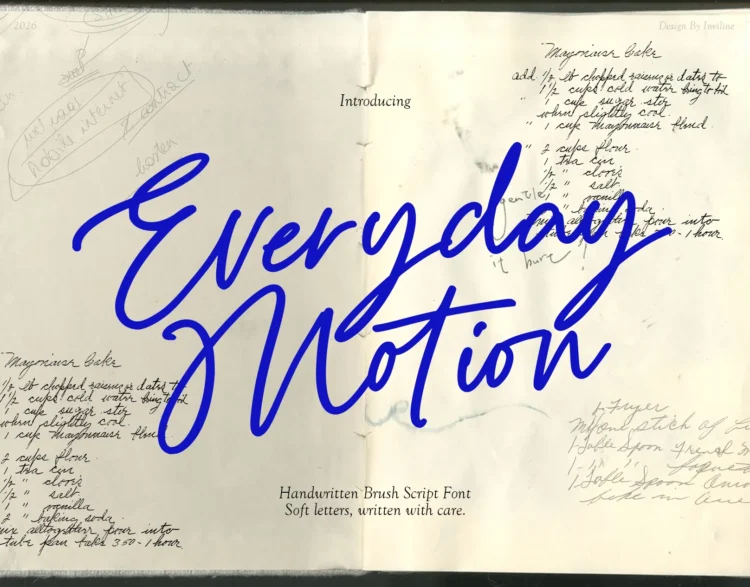 2026
Design By Inviline
Introducing
Everyday
Motion
Handwritten Brush Script Font
Soft letters, written with care.
Mayonaise Cake
add 1/2 lb chopped raisins or dates to
1 1/2 cups cold water bring to boil
" 1 cup sugar stir
when slightly cool
" 1 cup Mayonnaise blend.
" 2 cups flour.
1 tea cin
1/2 " cloves
1/2 " salt
" vanilla
" baking soda.
pour into
1 hour
gentle
it burn
mobile internet
contract
Mayonaise Cake
1/2 lb chopped raisins or dates to
1 1/2 cups cold water bring to boil
1 cup sugar stir
when slightly cool
1 cup Mayonnaise
2 cups flour.
1 tea cin
1/2 " cloves
1/2 " salt
" vanilla
2 " baking soda.
altogether pour into
tube pan bake 350 - 1 hour
1 Fryer
one stick of
1 Table Spoon French
1 Table Spoon
bake in